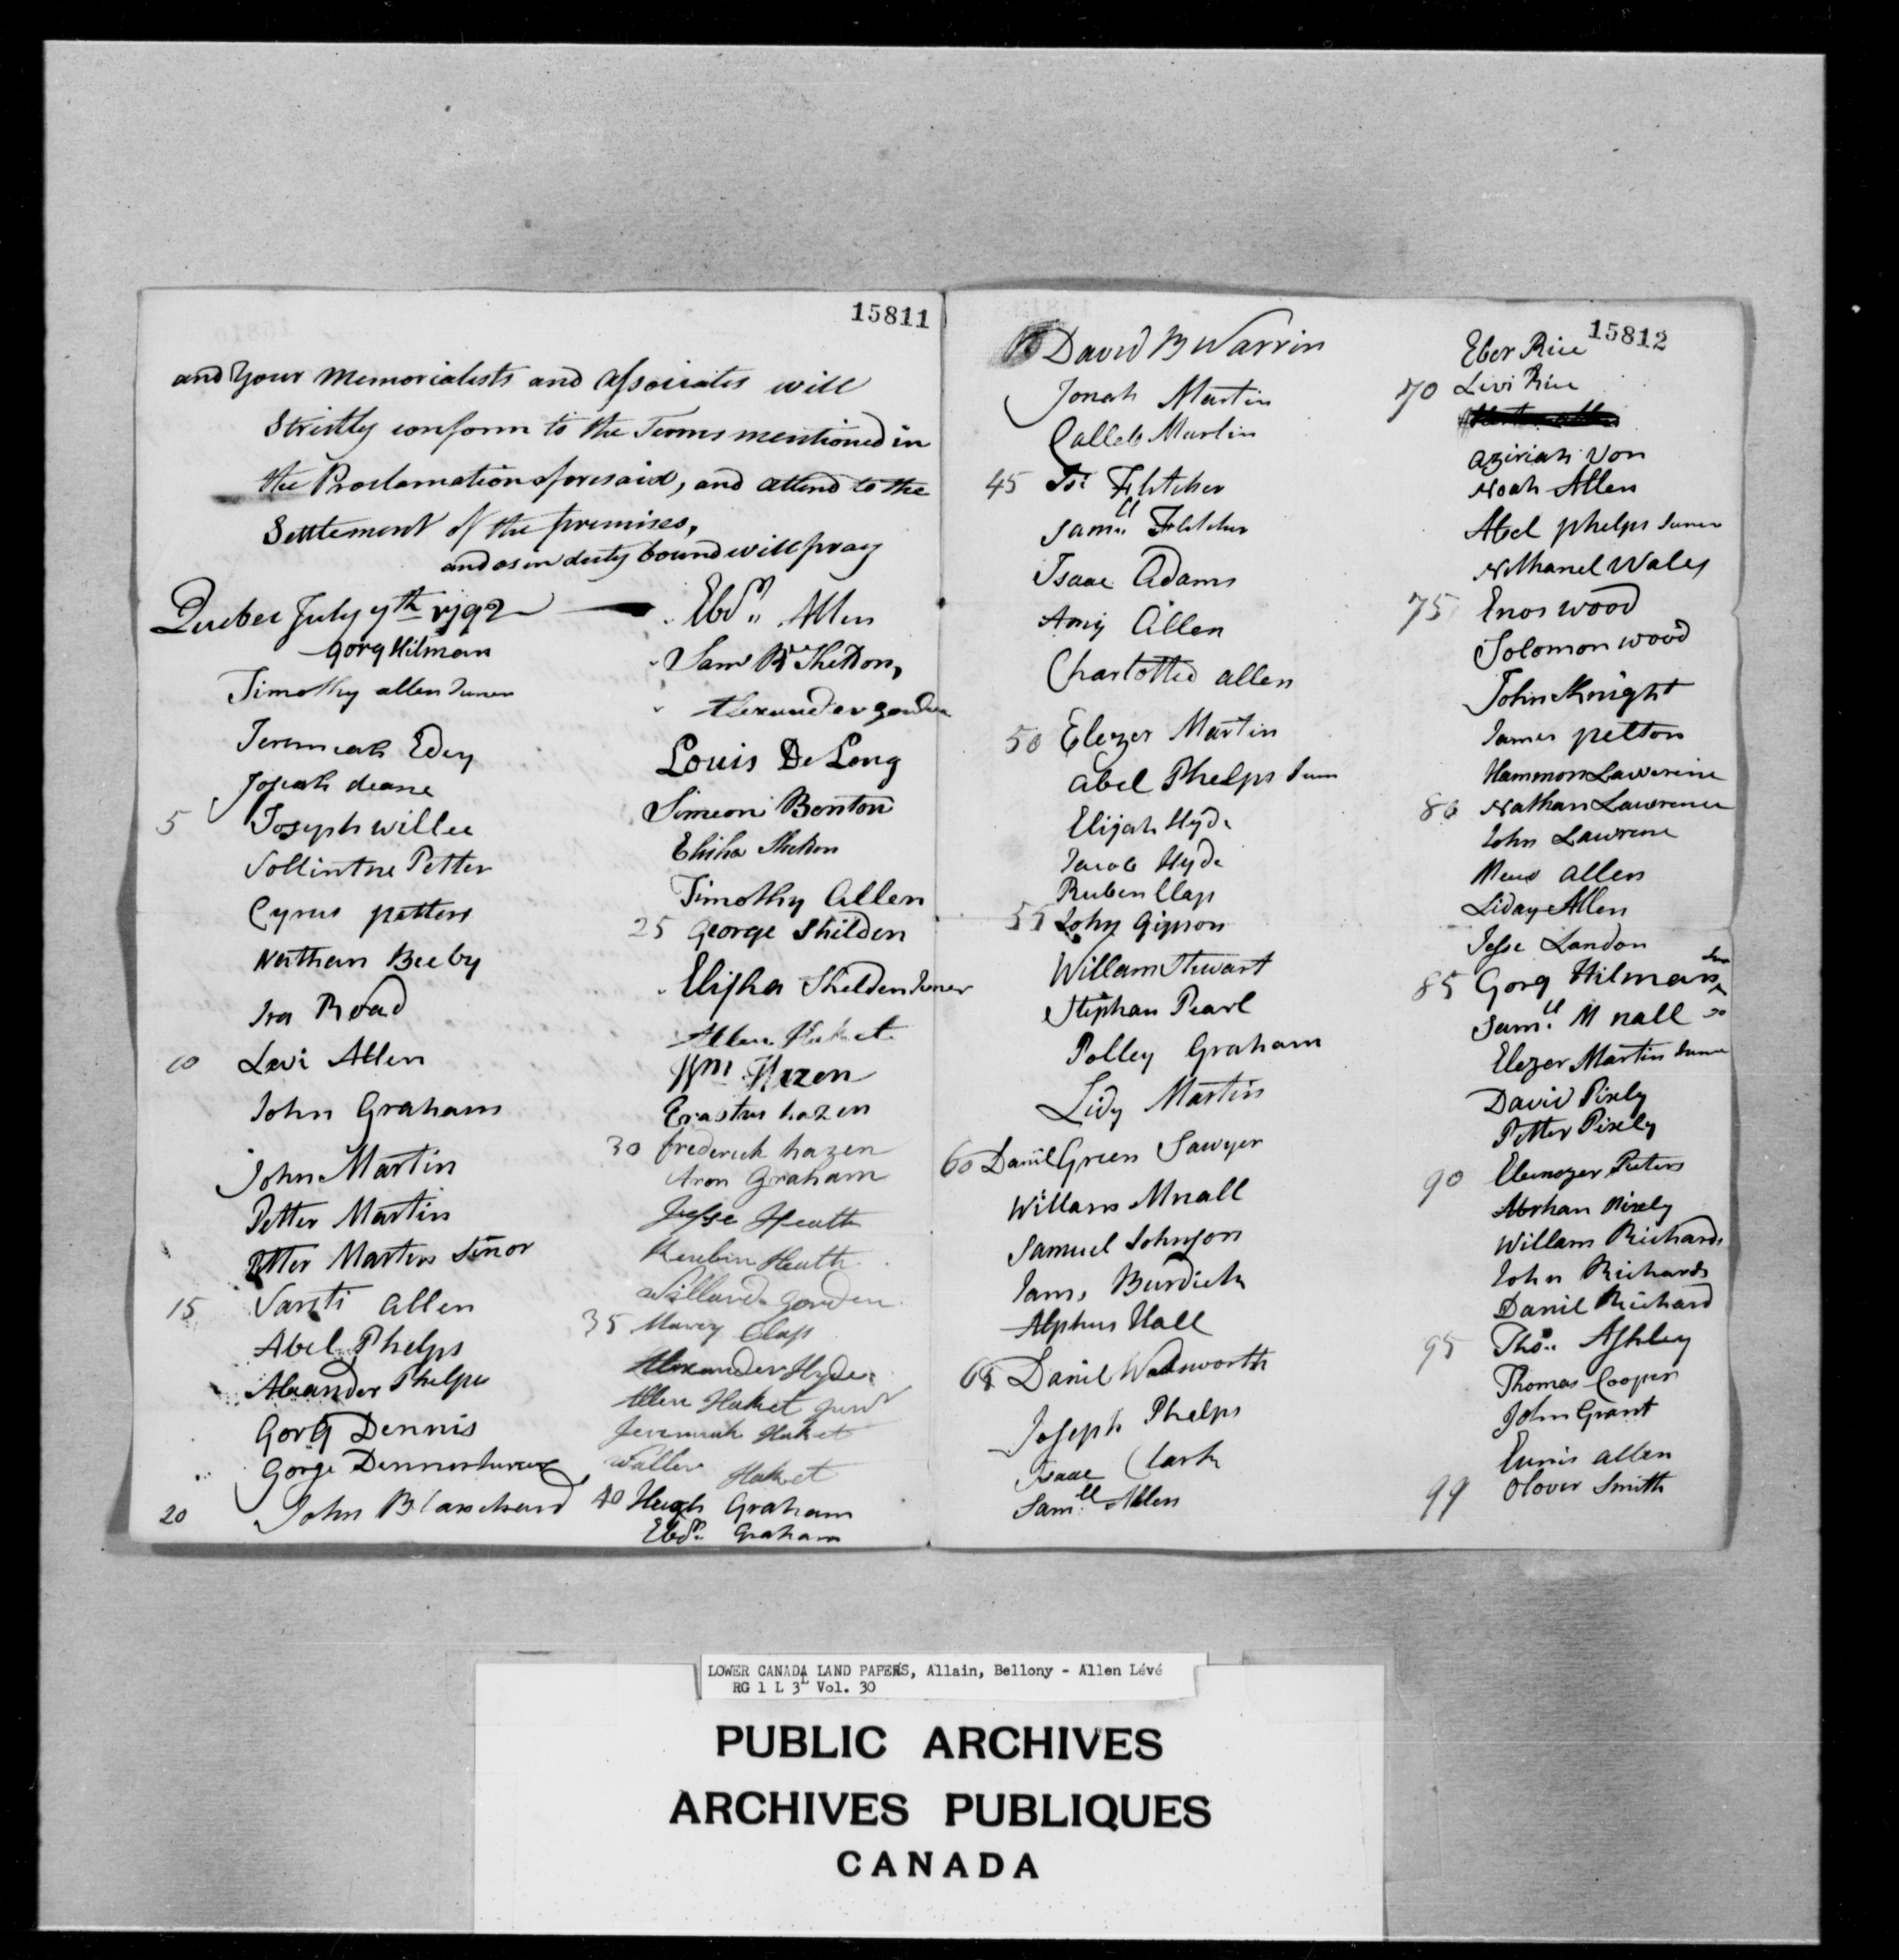 15811
and Your Memorialists and Associates will
Strictly conform to the Terms mentioned in
the Proclamation aforesaid, and attend to the
Settlement of the premises,
and as in duty bound will pray
Quebec July 7th 1792
Gorg Hilman
Timothy allen Juner
Jeremiah Edey
Josiah deane
5 Joseph willee
Vollintne Petter
Cyrus petters
Nathan Beeby
Ira Road
10 Levi Allen
John Graham
John Martin
Petter Martin
Petter Martin Senor
15 Varsti Allen
Abel Phelps
Alexander Phelps
Gorg Dennis
Gorge Dennis Juner
20 John Blanchard
Ebdn. Allen
Saml B Sheldon,
Alexander gordon
Louis De Long
Simeon Benton
Elisha Sheldon
Timothy Allen
25 George Shilden
Elisha Shelden Juner
Allen Haket
Wm. Hazen
Erastus hazen
30 frederick hazen
Aron Graham
Jesse Heath
Reubin Heath
Willard Gorden
35 Marcy Clap
Alexander Hyde
Allen Haket Junr
Jeremiah Haket
Waller Haket
40 Hugh Graham
Ebdn. Graham
David B Warrin
Jonah Martin
Calleb Martin
45 Fletcher
Samll Fletcher
Isaac Adams
Amy Allen
Charlotted allen
50 Elezer Martin
Abel Phelps Jun
Elijah Hyde
Jacob Hyde
Ruben Clap
55 John Gipson
Willam Stewart
Stephan Pearl
Polley Graham
Lidy Martin
60 Danil Green Sawyer
Willam Mnall
Samuel Johnson
Jams Burdick
Alphus Hall
65 Danil Wadsworth
Joseph Phelps
Isaac Clark
Samll Allen
15812
Eber Rice
70 Levi Rice
Aziriah Von
Noah Allen
Abel phelps Juner
Nethanel Wales
75 Enos Wood
Solomon Wood
John Knight
James pelton
Hammon Lawrence
80 Nathan Lawrence
John Lawrence
allen
Liday Allen
Jesse Landon
85 Gorg Hilman Jun
Samll Mnall Do
Elezer Martin Juner
David Pixly
Petter Pixly
90 Ebenezer Peters
Abrham Pixely
Willam Richards
John Richards
Danil Richard
95 Thos. Ashley
Thomas Cooper
John Grant
Eunis allen
99 Olover Smith
LOWER CANADA LAND PAPERS, Allain, Bellony - Allen Lévé
RG 1 L 3L Vol. 30
PUBLIC ARCHIVES
ARCHIVES PUBLIQUES
CANADA